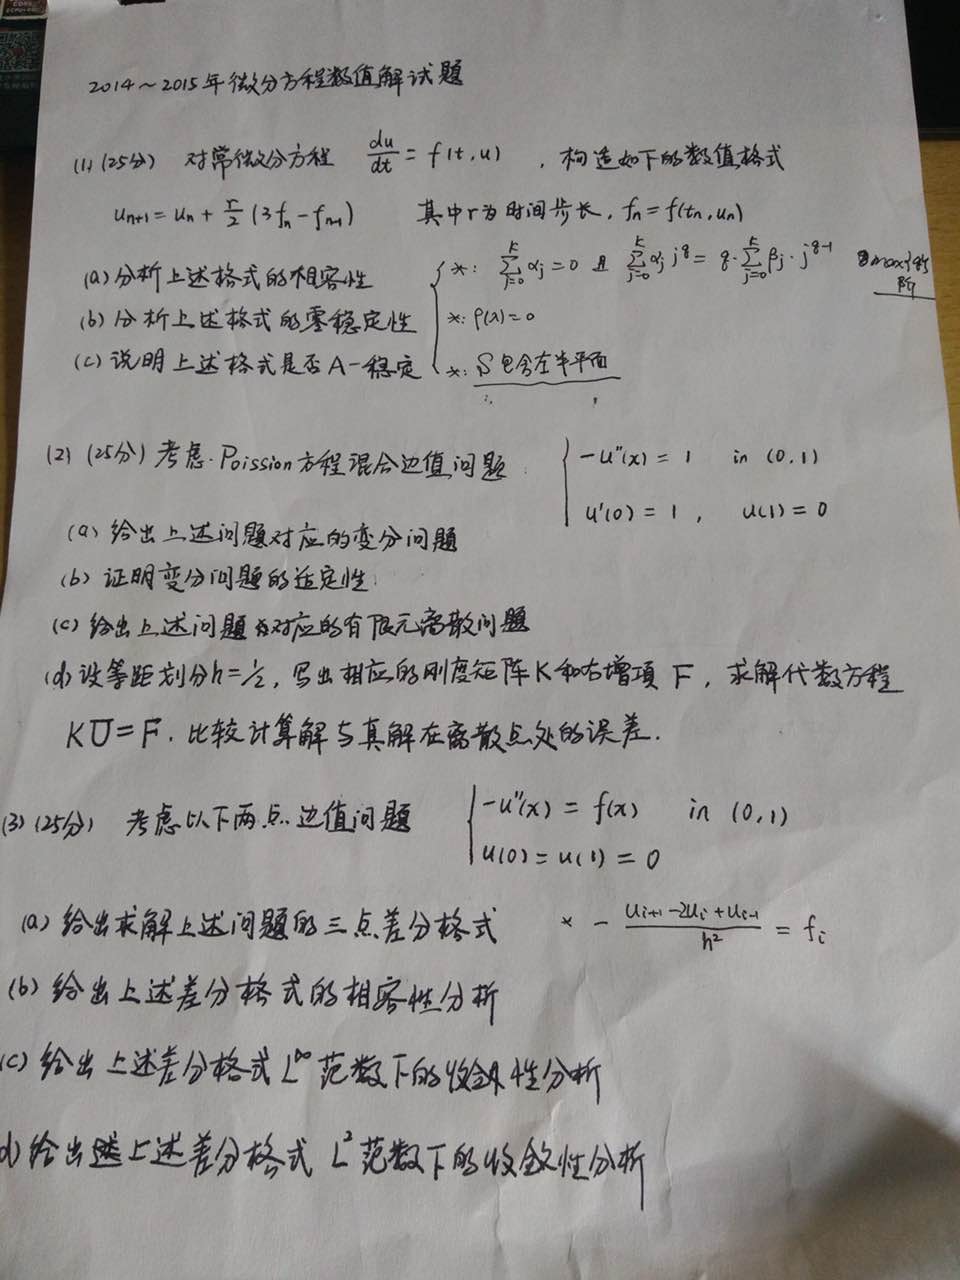 2014~2015年微分方程数值解试题
(1) (25分) 对常微分方程 du/dt = f(t,u) ，构造如下的数值格式
u_{n+1} = u_n + r/2 (3f_n - f_{n-1}) 其中r为时间步长，f_n = f(t_n, u_n)
(a) 分析上述格式的相容性
*: ∑_{j=0}^{k} α_j = 0 且 ∑_{j=0}^{k} α_j j^q = q·∑_{j=0}^{k} β_j · j^{q-1}
阶
(b) 分析上述格式的零稳定性
*: ρ(λ) = 0
(c) 说明上述格式是否A-稳定
*: S包含左半平面
(2) (25分) 考虑Poission方程混合边值问题
-u''(x) = 1 in (0,1)
u'(0) = 1 , u(1) = 0
(a) 给出上述问题对应的变分问题
(b) 证明变分问题的适定性.
(c) 给出上述问题对应的有限元离散问题
(d) 设等距划分h=1/2，写出相应的刚度矩阵K和右增项 F，求解代数方程
KU=F. 比较计算解与真解在离散点处的误差.
(3) (25分) 考虑以下两点边值问题
-u''(x) = f(x) in (0,1)
u(0) = u(1) = 0
(a) 给出求解上述问题的三点差分格式 * - (u_{i+1} - 2u_i + u_{i-1})/h² = f_i
(b) 给出上述差分格式的相容性分析
(c) 给出上述差分格式L^∞范数下的收敛性分析
d) 给出上述差分格式 L²范数下的收敛性分析